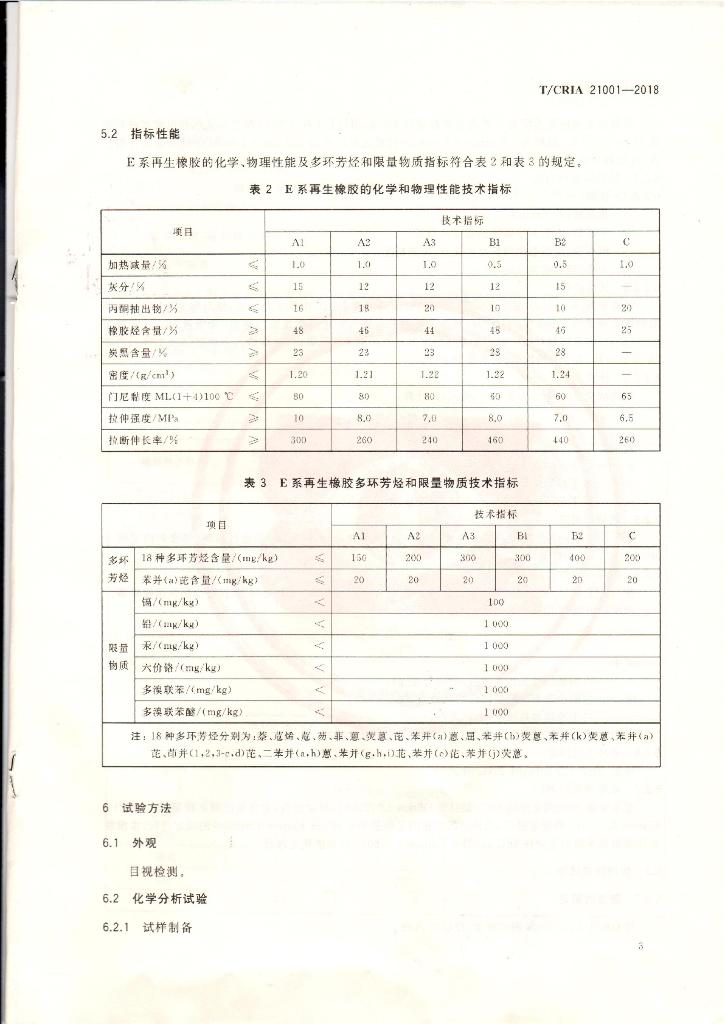 T/CRIA 21001—2018
5.2 指标性能
E系再生橡胶的化学、物理性能及多环芳烃和限量物质指标符合表2和表3的规定。
表 2 E系再生橡胶的化学和物理性能技术指标
项目 技术指标
A1 A2 A3 B1 B2 C
加热减量/% ≤ 1.0 1.0 1.0 0.5 0.5 1.0
灰分/% ≤ 15 12 12 12 15 —
丙酮抽出物/% ≤ 16 18 20 10 10 20
橡胶烃含量/% ≥ 48 46 44 48 46 25
炭黑含量/% ≥ 23 23 23 28 28 —
密度/(g/cm³) ≤ 1.20 1.21 1.22 1.22 1.24
门尼黏度 ML(1+4)100 ℃ ≤ 80 80 80 60 60 65
拉伸强度/MPa ≥ 10 8.0 7.0 8.0 7.0 6.5
拉断伸长率/% ≥ 300 260 240 460 440 260
表 3 E系再生橡胶多环芳烃和限量物质技术指标
项目 技术指标
A1 A2 A3 B1 B2 C
多环芳烃 18种多环芳烃含量/(mg/kg) ≤ 150 200 300 300 400 200
苯并(a)芘含量/(mg/kg) ≤ 20 20 20 20 20 20
限量物质 镉/(mg/kg) < 100
铅/(mg/kg) < 1 000
汞/(mg/kg) < 1 000
六价铬/(mg/kg) < 1 000
多溴联苯/(mg/kg) < 1 000
多溴联苯醚/(mg/kg) < 1 000
注：18种多环芳烃分别为:萘、苊烯、苊、芴、菲、蒽、荧蒽、芘、苯并(a)蒽、䓛、苯并(b)荧蒽、苯并(k)荧蒽、苯并(a)
芘、茚并(1,2,3-c,d)芘、二苯并(a,h)蒽、苯并(g,h,i)苝、苯并(e)芘、苯并(j)荧蒽。
6 试验方法
6.1 外观
目视检测。
6.2 化学分析试验
6.2.1 试样制备
3